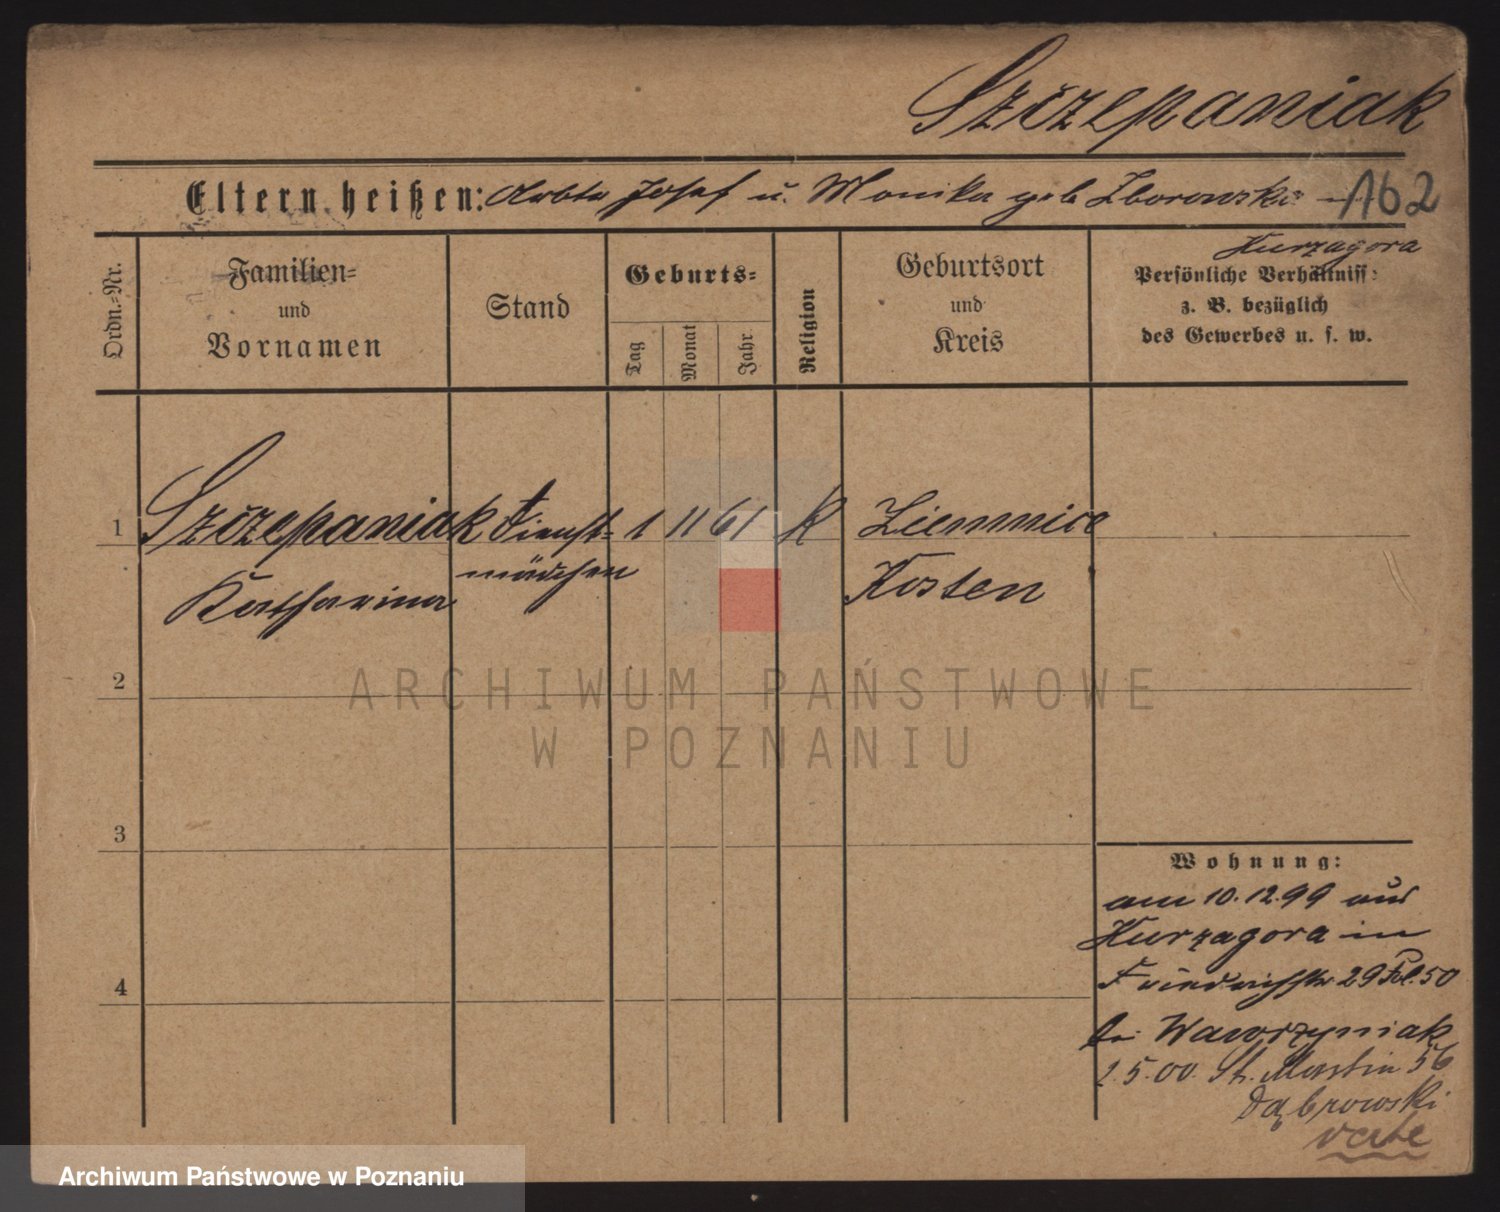 Szczepaniak
Eltern heißen: Josef u. Monika geb Zborowska
162
Kurzagora
Ordn.-Nr.
Familien-
und
Vornamen
Stand
Geburts-
Tag
Monat
Jahr
Religion
Geburtsort
und
Kreis
Persönliche Verhältniss:
z. B. bezüglich
des Gewerbes u. s. w.
1 Szczepaniak Dienst- 1 11 61 K Ziemnice
Katharina mädchen Kosten
2
3
4
Wohnung:
am 10.12.99 aus
Kurzagora in
Friedrichstr 29 Pol. 50
bei Wawrzyniak
2.5.00. St. Martin 56
Dąbrowski
verte
ARCHIWUM PAŃSTWOWE
W POZNANIU
Archiwum Państwowe w Poznaniu